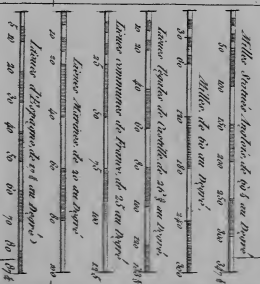 Milles Statuts Anglais, de 69½ au Degré
50 100 150 200 250 300 347½
Milles, de 60 au Degré
30 60 120 180 240 300
Lieues Légales de Castille de 26½ au Degré
10 20 40 60 80 100 120 132½
Lieues communes de France, de 25 au Degré
25 50 75 100 125
Lieues Marines, de 20 au Degré
10 20 40 60 80 100
Lieues d'Espagne, de 17½ au Degré
5 10 20 30 40 50 60 70 80 87½